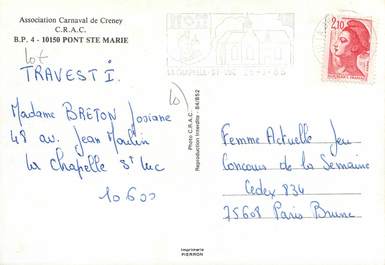 Association Carnaval de Creney
C.R.A.C.
B.P. 4 - 10150 PONT STE MARIE
lot
TRAVESTI.
Madame BRETON Josiane
48 av. Jean Moulin
La Chapelle St Luc
10600
Photo C.R.A.C.
Reproduction Interdite - 84/B52
LA CHAPELLE-ST-LUC
2,10
Femme Actuelle Jeu
Concours de la Semaine
Cedex 834
75608 Paris Brune
Imprimerie
PIERRON